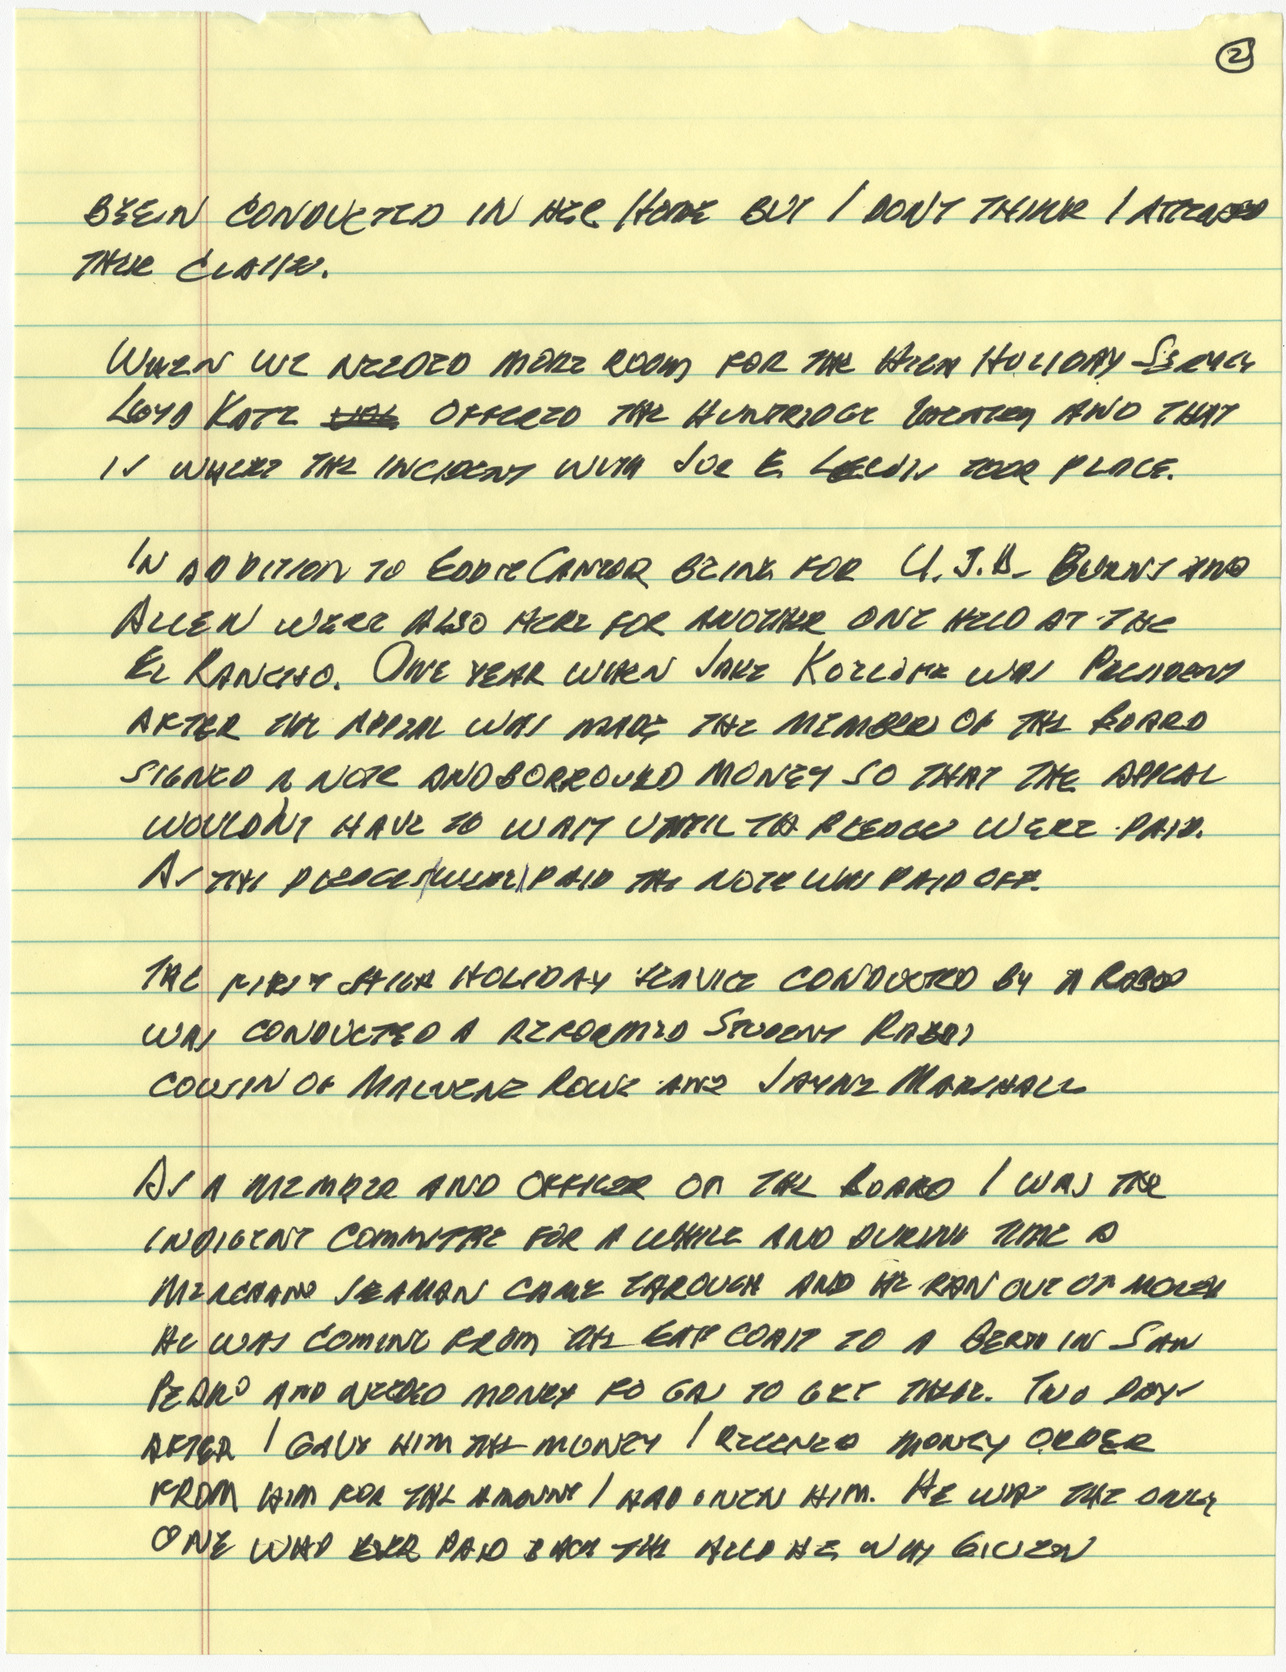 2
BEEIN CONDUCTED IN HER HOME BUT I DON'T THINK I ATTENDED
THEIR CLASSES.
WHEN WE NEEDED MORE ROOM FOR THE HIGH HOLIDAY SERVICES
LLOYD KATZ OFFERED THE HUNTRIDGE THEATER AND THAT
IS WHERE THE INCIDENT WITH JOE E. LEWIS TOOK PLACE.
IN ADDITION TO EDDIE CANTOR BEING FOR U.J.A. BURNS AND
ALLEN WERE ALSO HERE FOR ANOTHER ONE HELD AT THE
EL RANCHO. ONE YEAR WHEN JAKE KOZLOFF WAS PRESIDENT
AFTER THE APPEAL WAS MADE THE MEMBERS OF THE BOARD
SIGNED A NOTE AND BORROWED MONEY SO THAT THE APPEAL
WOULDN'T HAVE TO WAIT UNTIL THE PLEDGES WERE PAID.
AS THE PLEDGES (WERE) PAID THE NOTE WAS PAID OFF.
THE FIRST HIGH HOLIDAY SERVICE CONDUCTED BY A RABBI
WAS CONDUCTED A REFORMED STUDENT RABBI
COUSIN OF MALVENE ROUE AND JAYNE MARSHALL
AS A MEMBER AND OFFICER ON THE BOARD I WAS THE
INDIGENT COMMITTEE FOR A WHILE AND DURING TIME A
MERCHANT SEAMAN CAME THROUGH AND HE RAN OUT OF MONEY
HE WAS COMING FROM THE EAST COAST TO A BERTH IN SAN
PEDRO AND NEEDED MONEY FO GAS TO GET THERE. TWO DAYS
AFTER I GAVE HIM THE MONEY I RECEIVED MONEY ORDER
FROM HIM FOR THE AMOUNT I HAD GIVEN HIM. HE WAS THE ONLY
ONE WHO EVER PAID BACK THE HE WAS GIVEN